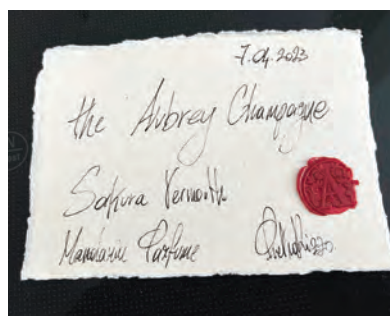 7.04.2023
the Aubrey Champagne
Sakura Vermouth
Mandarin Parfume